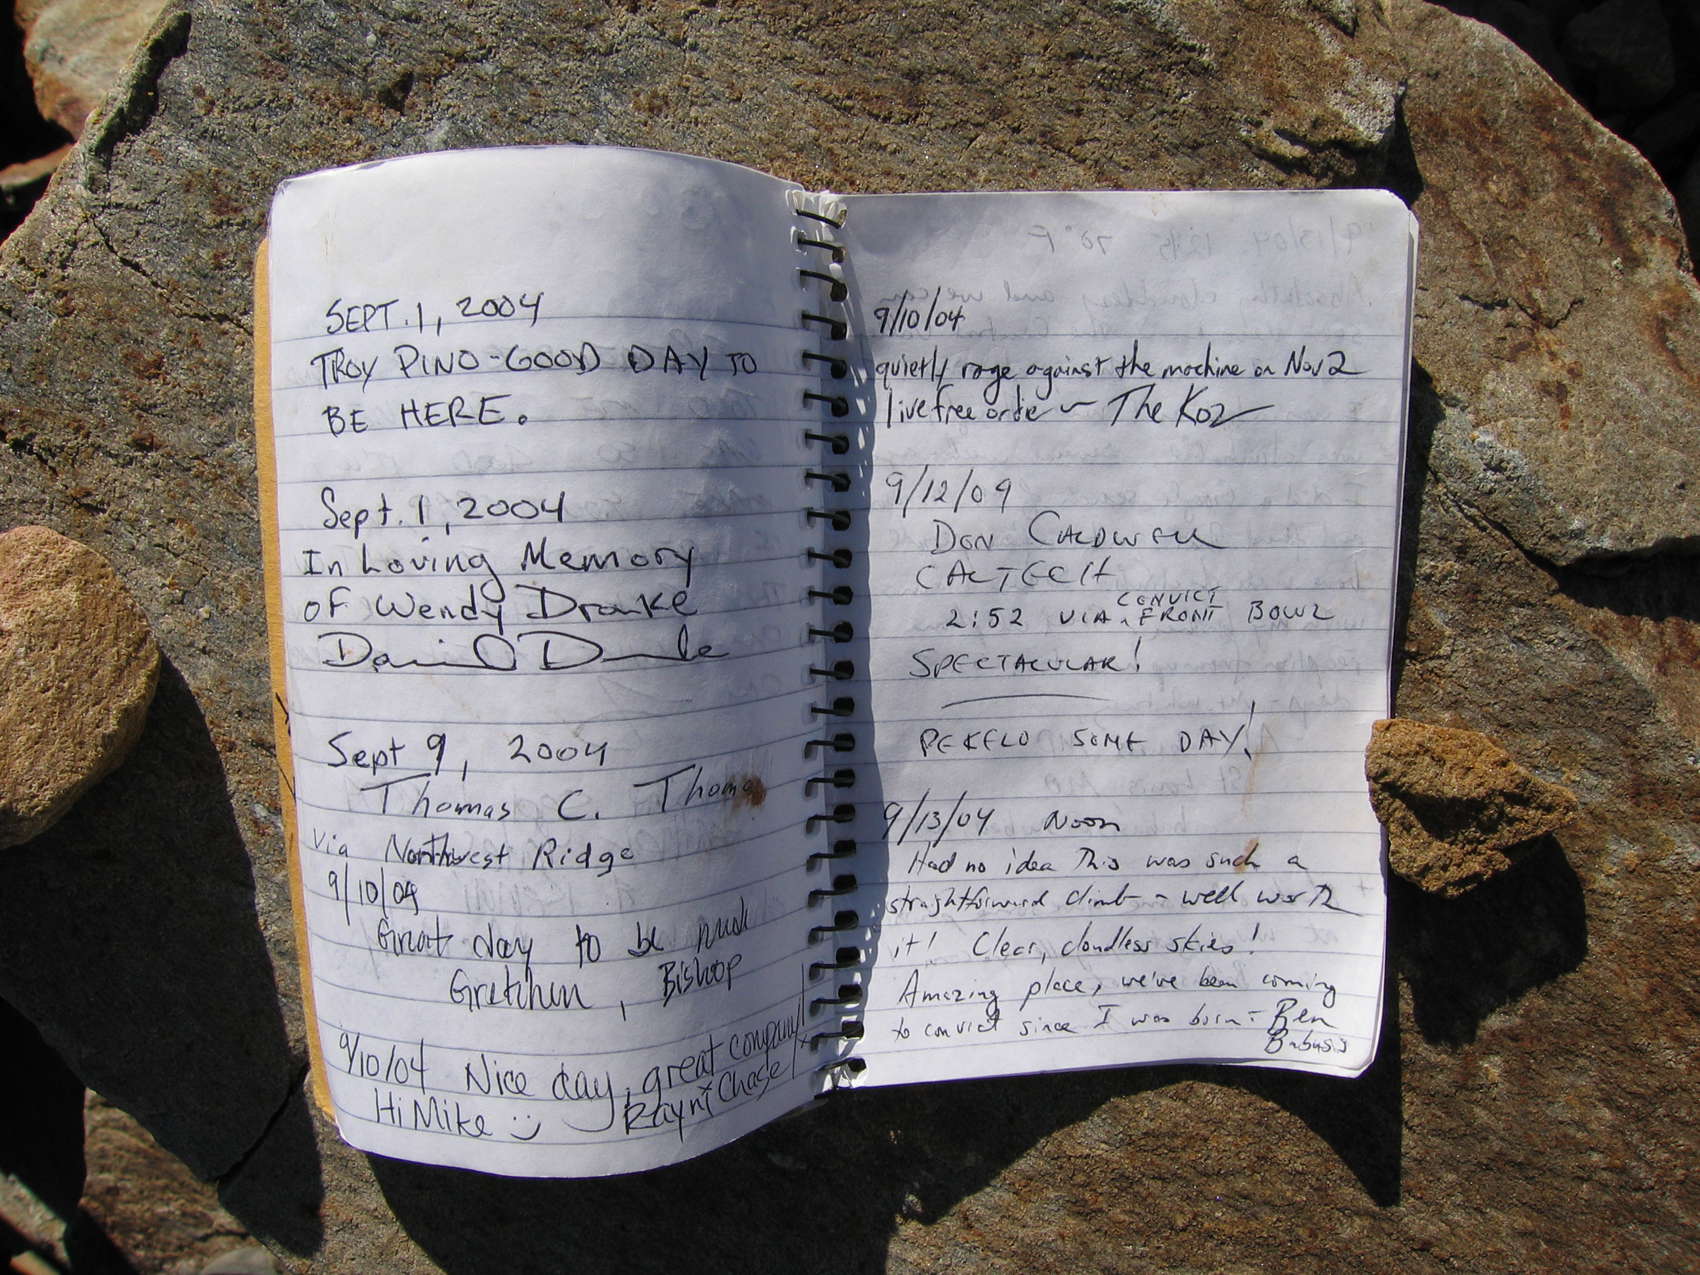 SEPT. 1, 2004
TROY PINO - GOOD DAY TO
BE HERE.
Sept. 1, 2004
In Loving Memory
of Wendy Drake
Daniel Drake
Sept 9, 2004
Thomas C.
via Northwest Ridge
9/10/04
Great day to be
Gretchen, Bishop
9/10/04 Nice day, great company!
Hi Mike :) Rayni Chase
9/10/04
quietly rage against the machine on Nov 2
live free or die ~ The Koz
9/12/04
DON CALDWELL
CALTECH
CONVICT
2:52 VIA ^ FRONT BOWL
SPECTACULAR!
SOME DAY!
9/13/04 Noon
Had no idea this was such a
straightforward climb - well worth
it! Clear, cloudless skies!
Amazing place, we've been coming
to convict since I was born - Ben